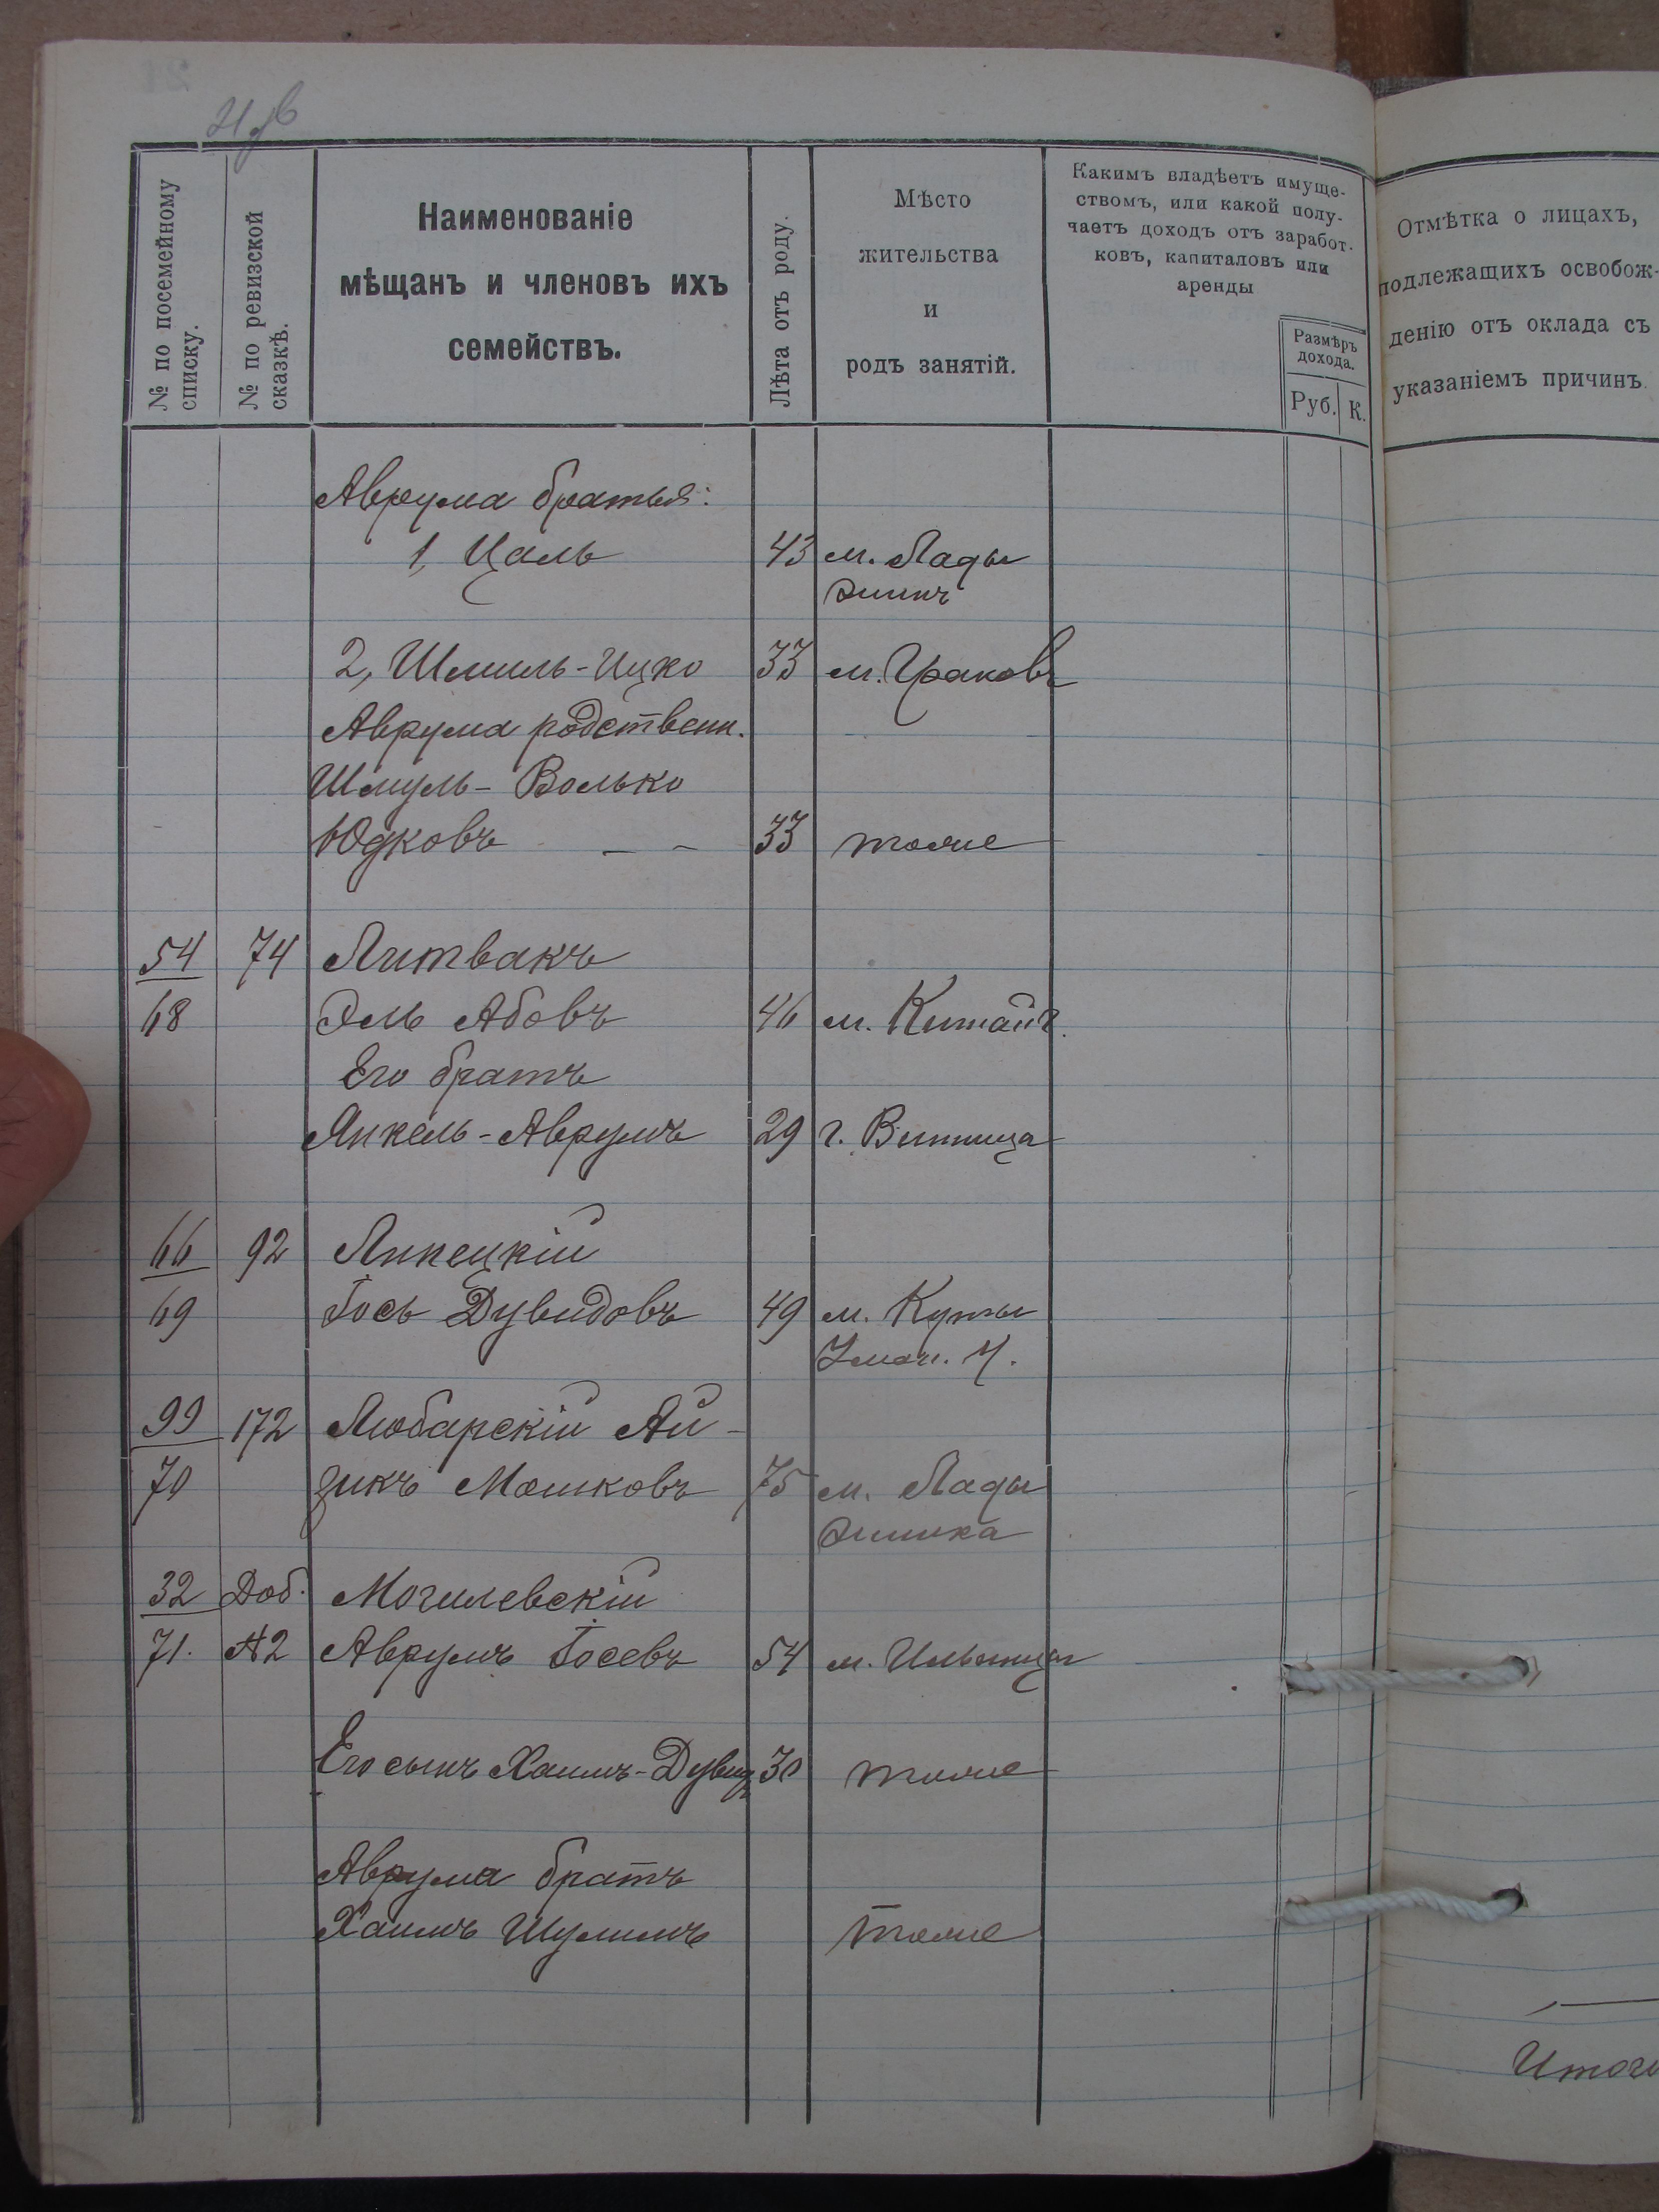 № по посемейному списку.
№ по ревизской сказкѣ.
Наименованіе
мѣщанъ и членовъ ихъ
семействъ.
Лѣта отъ роду.
Мѣсто
жительства
и
родъ занятій.
Какимъ владѣетъ имуще-
ствомъ, или какой полу-
чаетъ доходъ отъ заработ-
ковъ, капиталовъ или
аренды
Размѣръ
дохода.
Руб. К.
Отмѣтка о лицахъ,
подлежащихъ освобож-
денію отъ оклада съ
указаніемъ причинъ.
Аврума братья:
1, Цаль 43 м. Лады
жинъ
2, Шмиль-Ицко 33 м.
Аврума родственн.
Шмуль-Волько
Юдковъ - - 33 тоже
54 74 Литвакъ
68 Эль Абовъ 46 м. Китайг.
Его братъ
Янкель-Аврумъ 29 г. Винница
66 92 Липецкій
69 Іось Дувидовъ 49 м. Куты
Уман. У.
99 172 Любарскій Ай-
70 зикъ Мошковъ 75 м. Лады
жинка
32 Доб. Могилевскій
71. №2 Аврумъ Іосевъ 54 м. Ильинцы
Его сынъ Хаимъ-Дувид 30 тоже
Аврума братъ
Хаимъ Шулимъ тоже
Итого